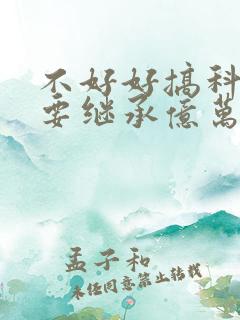 不好好搞科
要继承億萬
孟子和
未经同意禁止转载